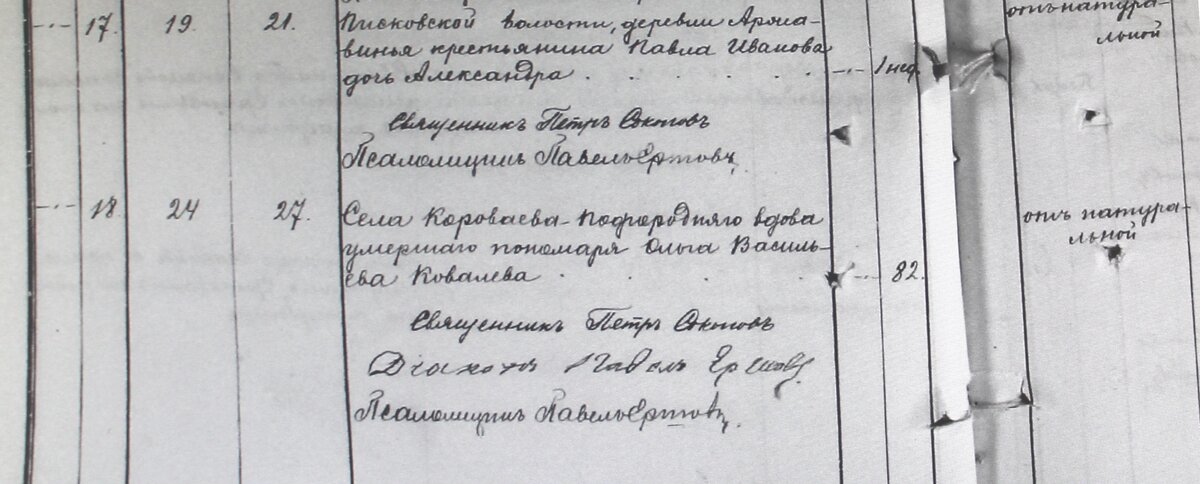 17. 19. 21. Писковской волости, деревни Аро
винья крестьянина Павла Иванова
дочь Александра . . . . . 1 нед.
отъ натура-
льной
Священникъ Петръ
Псаломщикъ Павелъ Ершовъ.
18 24 27. Села Короваева-Подгородняго вдова
умершаго пономаря Ольга Василь-
ева Ковалева . . . 82.
отъ натура-
льной
Священникъ Петръ
Діаконъ Павелъ Ершовъ
Псаломщикъ Павелъ Ершовъ.